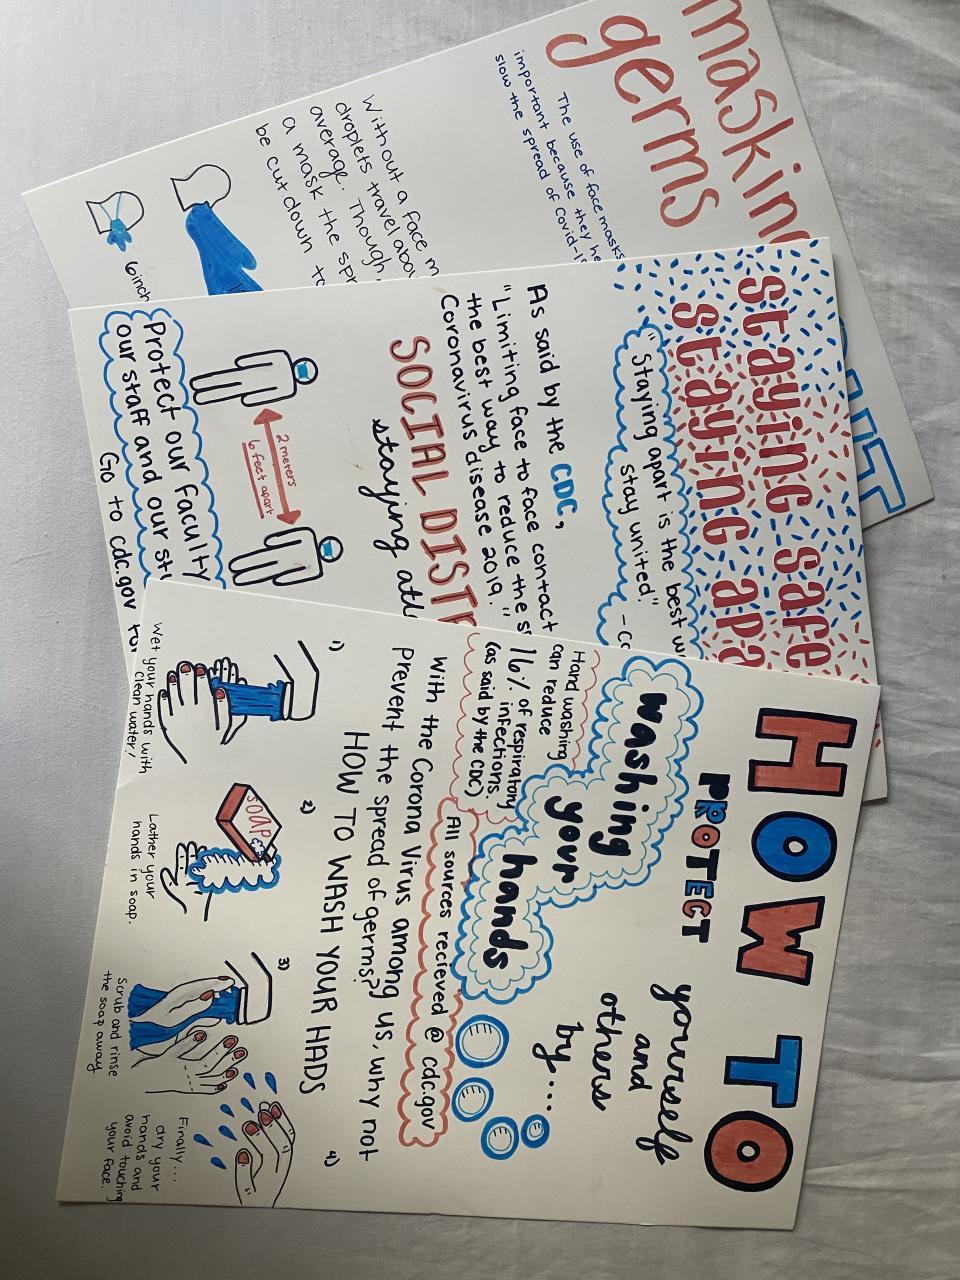 masking
germs
The use of face masks
important because they he
slow the spread of Covid-1
Without a face m
droplets travel abo
average. Though,
a mask the spr
be cut down to
6inch
staying safe
staying apa
"Staying apart is the best w
stay united."
As said by the CDC,
"Limiting face to face contact
the best way to reduce the s
Coronavirus disease 2019."
SOCIAL DIST
staying at
2 meters
6 feet apart
Protect our faculty
our staff and our st
Go to cdc.gov for
HOW TO
PROTECT
yourself
and
others
by....
washing
your
hands
Hand washing
can reduce
16% of respiratory
infections.
(as said by the CDC)
All sources recieved @ cdc.gov
With the Corona Virus among us, why not
prevent the spread of germs??
HOW TO WASH YOUR HADS
1)
Wet your hands with
clean water!
2)
SOAP
Lather your
hands in soap.
3)
Scrub and rinse
the soap away
4)
Finally...
dry your
hands and
avoid touching
your face.